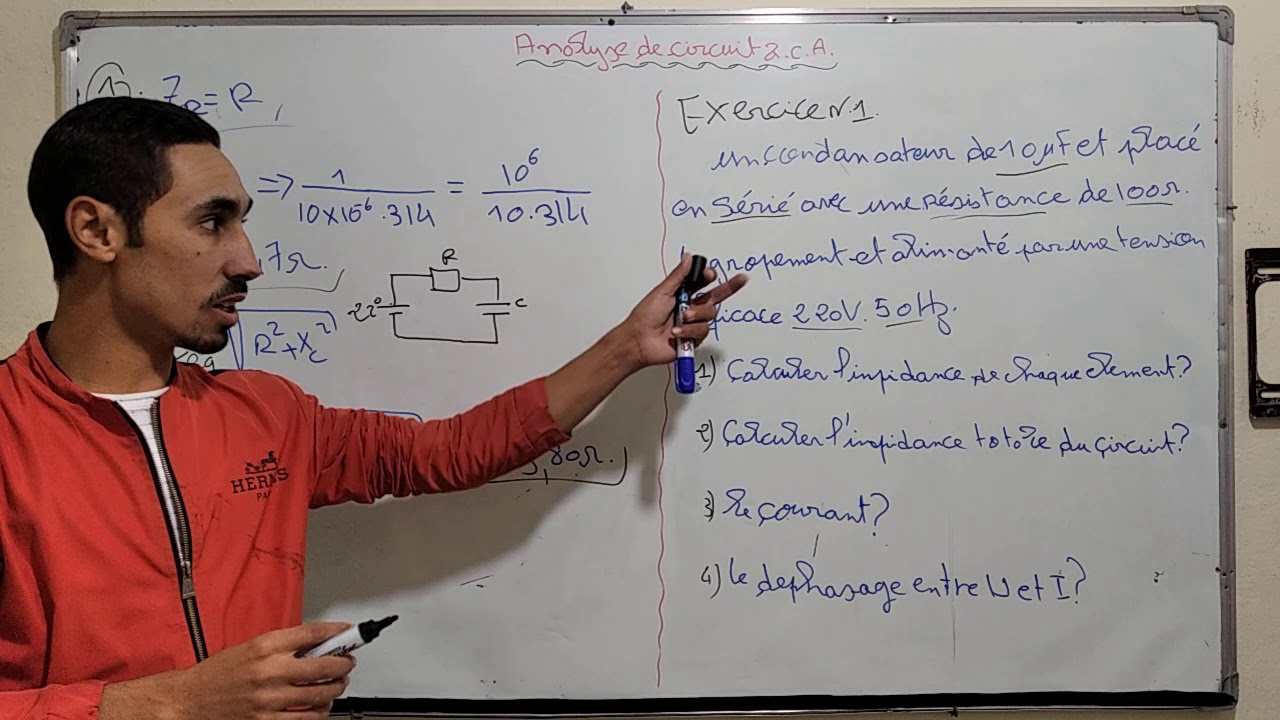 Analyse de circuit 2.C.A.
1) Z_R = R
=> 1 / 10x10^6 . 314 = 10^6 / 10.314
,7Ω.
R
220
C
√R²+X_c²
,80Ω.
HERMES
PA
Exercice N.1.
un condansateur de 10 µF et placé
en sérié avec une résistance de 100Ω.
gropement et alimanté par une tension
icace 220V. 50Hz.
1) Calculer l'impidance de chaque element?
2) Calculer l'impidance totale du çircuit?
3) le çourant?
4) le dephasage entre U et I?